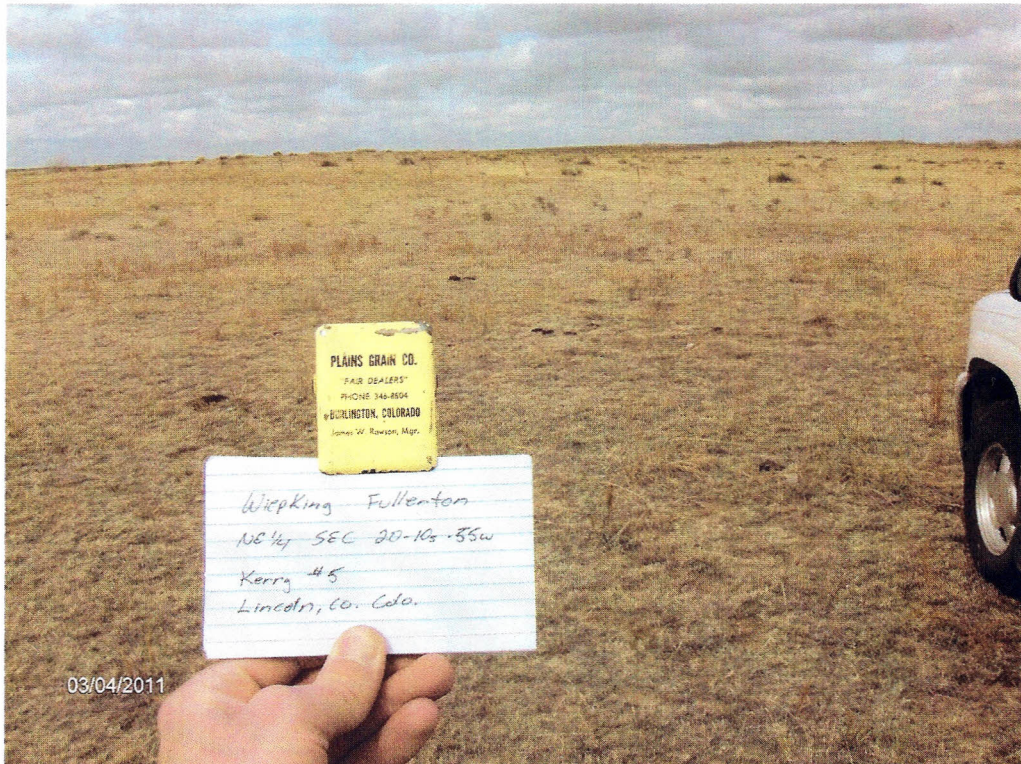 PLAINS GRAIN CO.
"FAIR DEALERS"
PHONE 346-8504
BURLINGTON, COLORADO
James W. Rawson, Mgr.
WiepKing Fullenton
NE 1/4 SEC 20-10s-55w
Kerry #5
Lincoln, Co. Colo.
03/04/2011